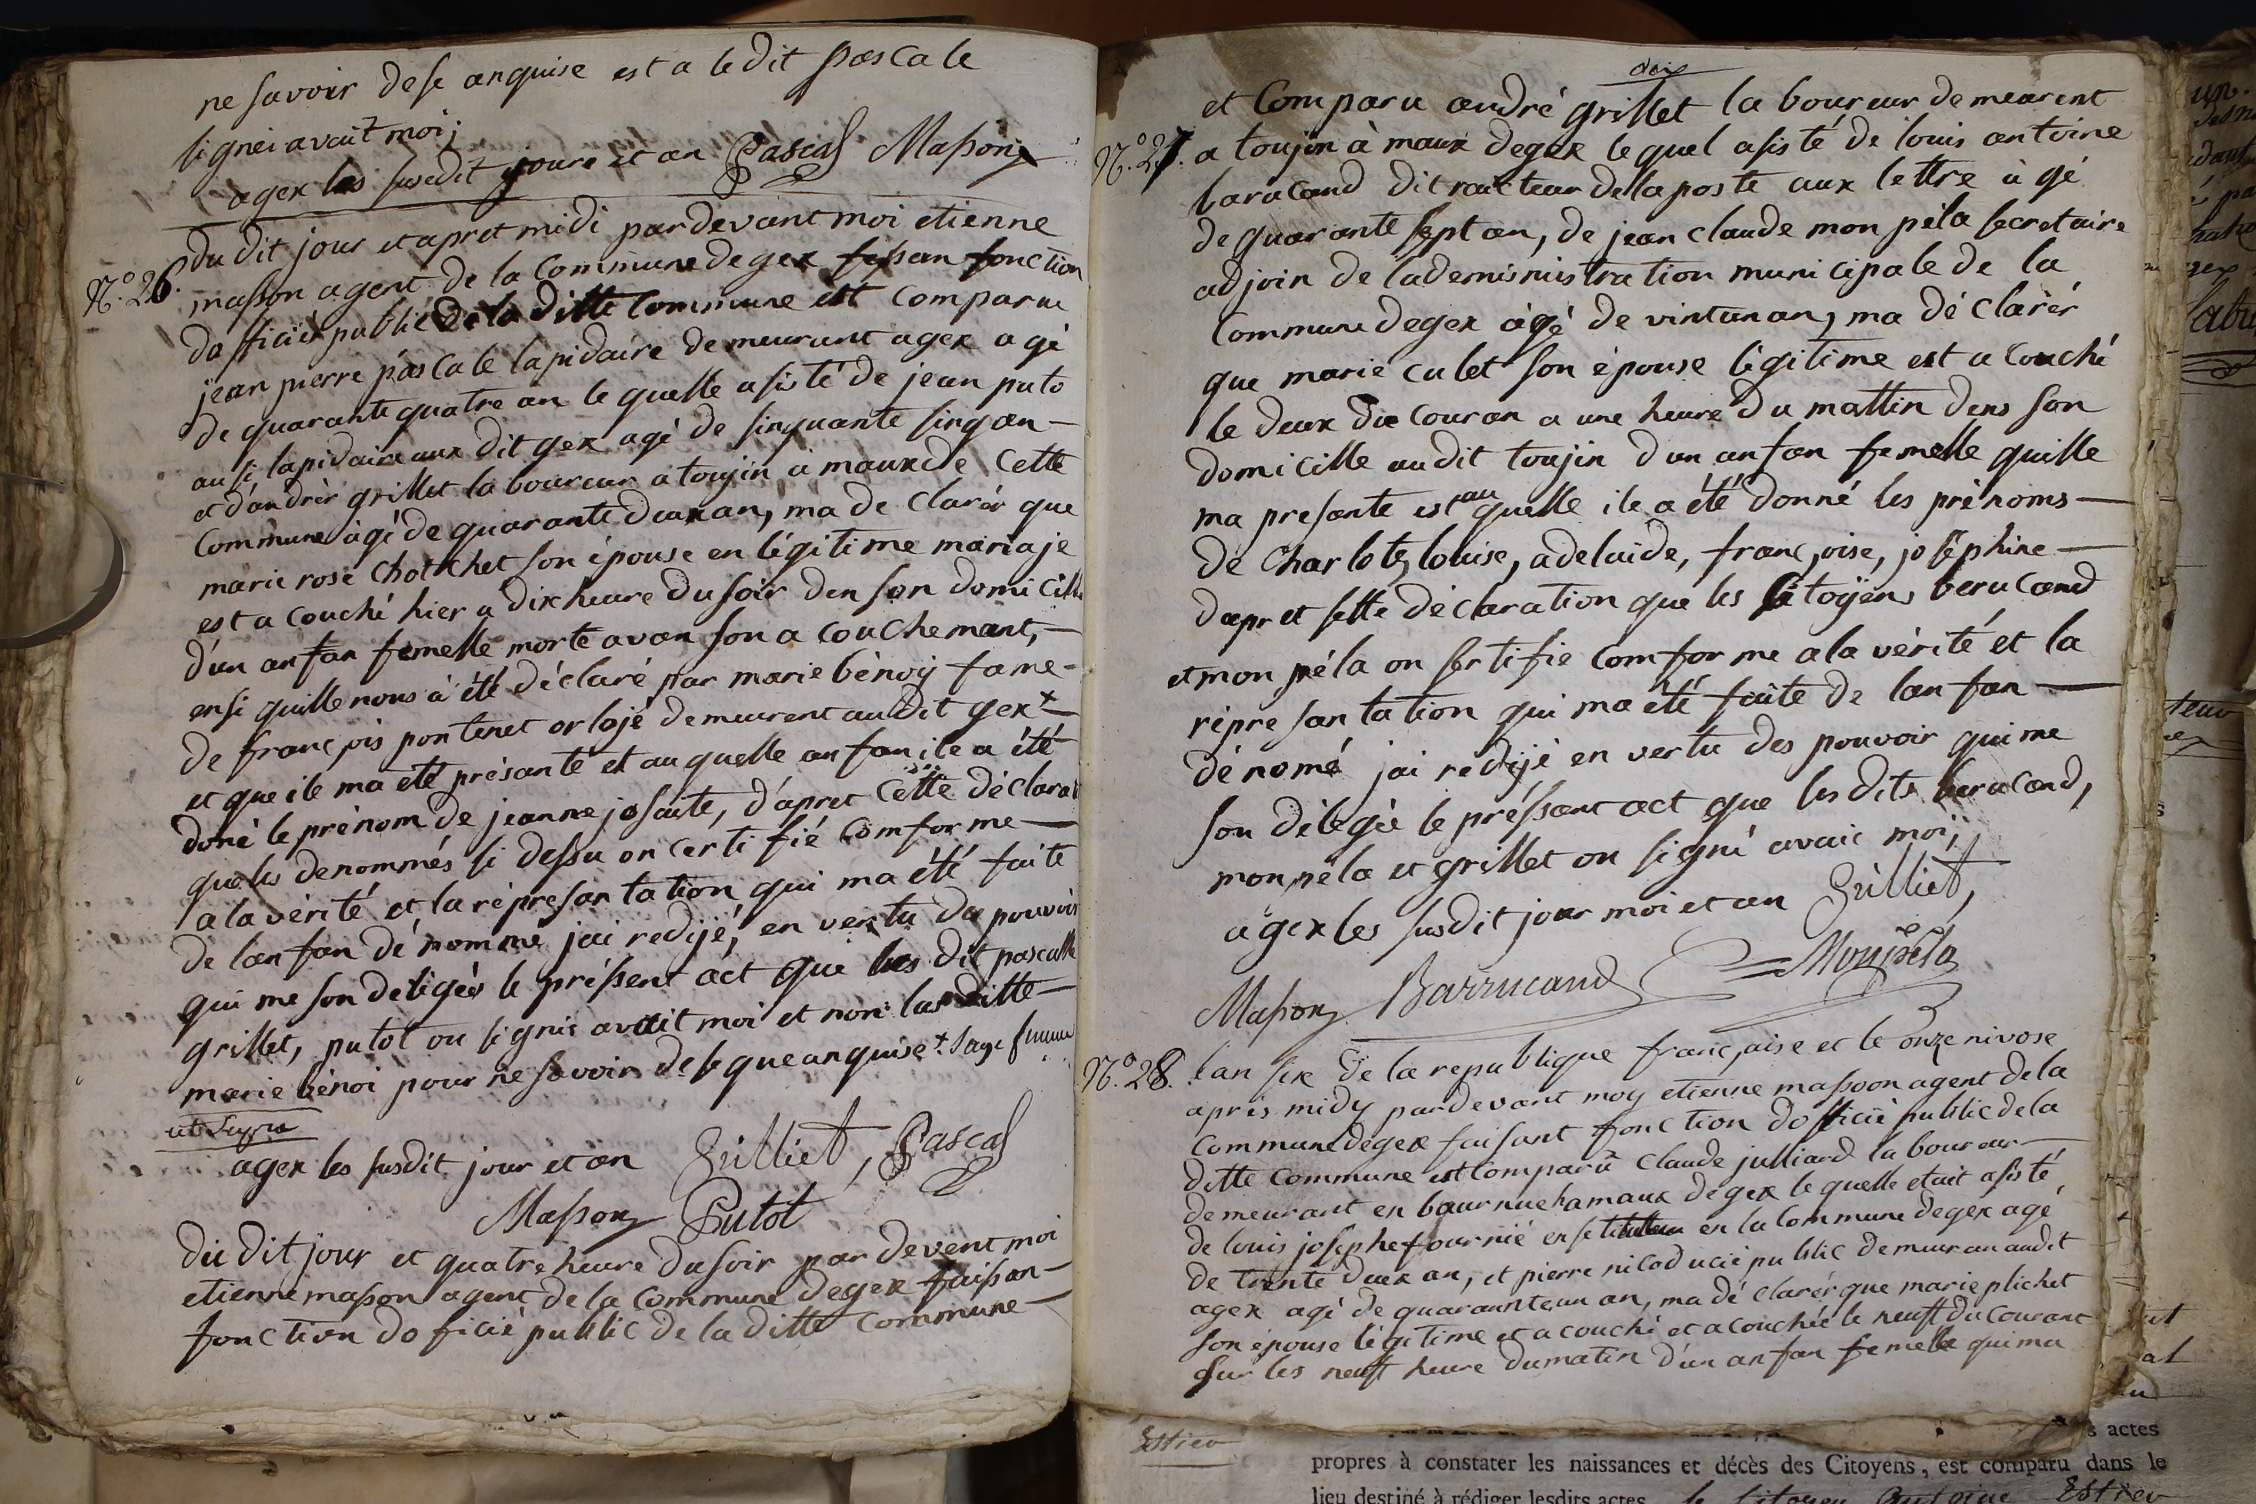 ne savoir de se anquise est a ledit pascale
signei avait moi;
a gex les susdit joure et an Pascal Masson
N.o 26. du dit jour et apret midi pardevant moi etienne
masson agent de la Commune de gex fessan fonction
dofficié public de la ditte Commune est Comparu
jean pierre pascale lapidaire demeurant a gex agé
de quarante quatre an le quelle asisté de jean puto
ausi lapidaire aux dit gex agé de sinquante sinq an —
et d'andrér grillet la boureur a toujin a mauxde Cette
Commune àgé de quarante deux an, ma de Clarér que
marie rose Chotchet son épouse en légitime mariaje
est a couché hier a dix heure du soir den son domicille
d'un anfan femelle morte avan son a couchemant, —
ensi quille nous à été déclaré par marie bénoÿ fame -
de françois pontenet orlojé demeurent audit gex + —
et que ile ma été présanté et auquelle anfan ile a été
doné le prénom de jeanne josaite, d'apret Cette déclarat
que les denommés si dessu on Certifié Comforme —
a la vérité et la réprésantation qui ma été faite
de lanfan dénommé jai redijé, en vertu du pouvoir
qui me son deligés le préssent act que les dit pascalle
grillet, putot on signié avait moi et non las ditte —
marie bénoi pour ne savoir de se que anquise + sage femme
ut supra
a gex les susdit jour et an Grilliet, Pascal
Masson Putot
du dit jour et quatre heure du soir par devent moi
etienne masson agent de la Commune de gex faissan —
fonction do ficié public de la ditte Commune —
et Comparu andré grillet la boureur demeurent
N.o 27. a toujin à maux de gex le quel asisté de louis antoine
barucand ditraicteur de la poste aux lettre à gé
de quarante sept an, de jean claude mon péla secretaire
adjoin de ladeministration municipale de la
Commune de gex àgé de vintun an, ma dé clarér
que marie culet son épouse légitime est a couché
le deux du Couran a une heure du mattin dens son
domicille audit toujin d'un anfan femelle quille
ma presante est au quelle ile a été donné les prénoms —
de Charlote, louise, adelaïde, françoise, joséphine —
dapret sette déclaration que les sitoÿens berucand
et mon péla on sertifie Comforme a la vérité et la
répresantation qui ma été faite de lanfan —
dénomé jai redijé en vertu des pouvoir qui me
son délégée le préssant act que les dits berucand,
mon péla et grillet on signé avaic moi;
a gex les susdit jour moi et an Grilliet,
Masson Barrucand Monpela
N.o 28. l'an six de la republique française et le onze nivose
après midy pardevant moy etienne massoon agent de la
Commune de gex faisant fonction dofficié public de la
ditte Commune est Comparu Claude julliard la boureur —
demeurant en bournue hamaux de gex le quelle etait asisté
de louis josephe fournié ensetituteur en la Commune de gex agé
de trente deux an, et pierre nicod ucié public demeuran audit
a gex agé de quarannteun an, ma dé clarér que marie plichet
son épouse légitime et a couché et a couchée le neuft du Courant
sur les neuft heure du matin d'un anfan femelle qui ma
propres à constater les naissances et décès des Citoyens, est comparu dans le
lieu destiné à rédiger lesdits actes